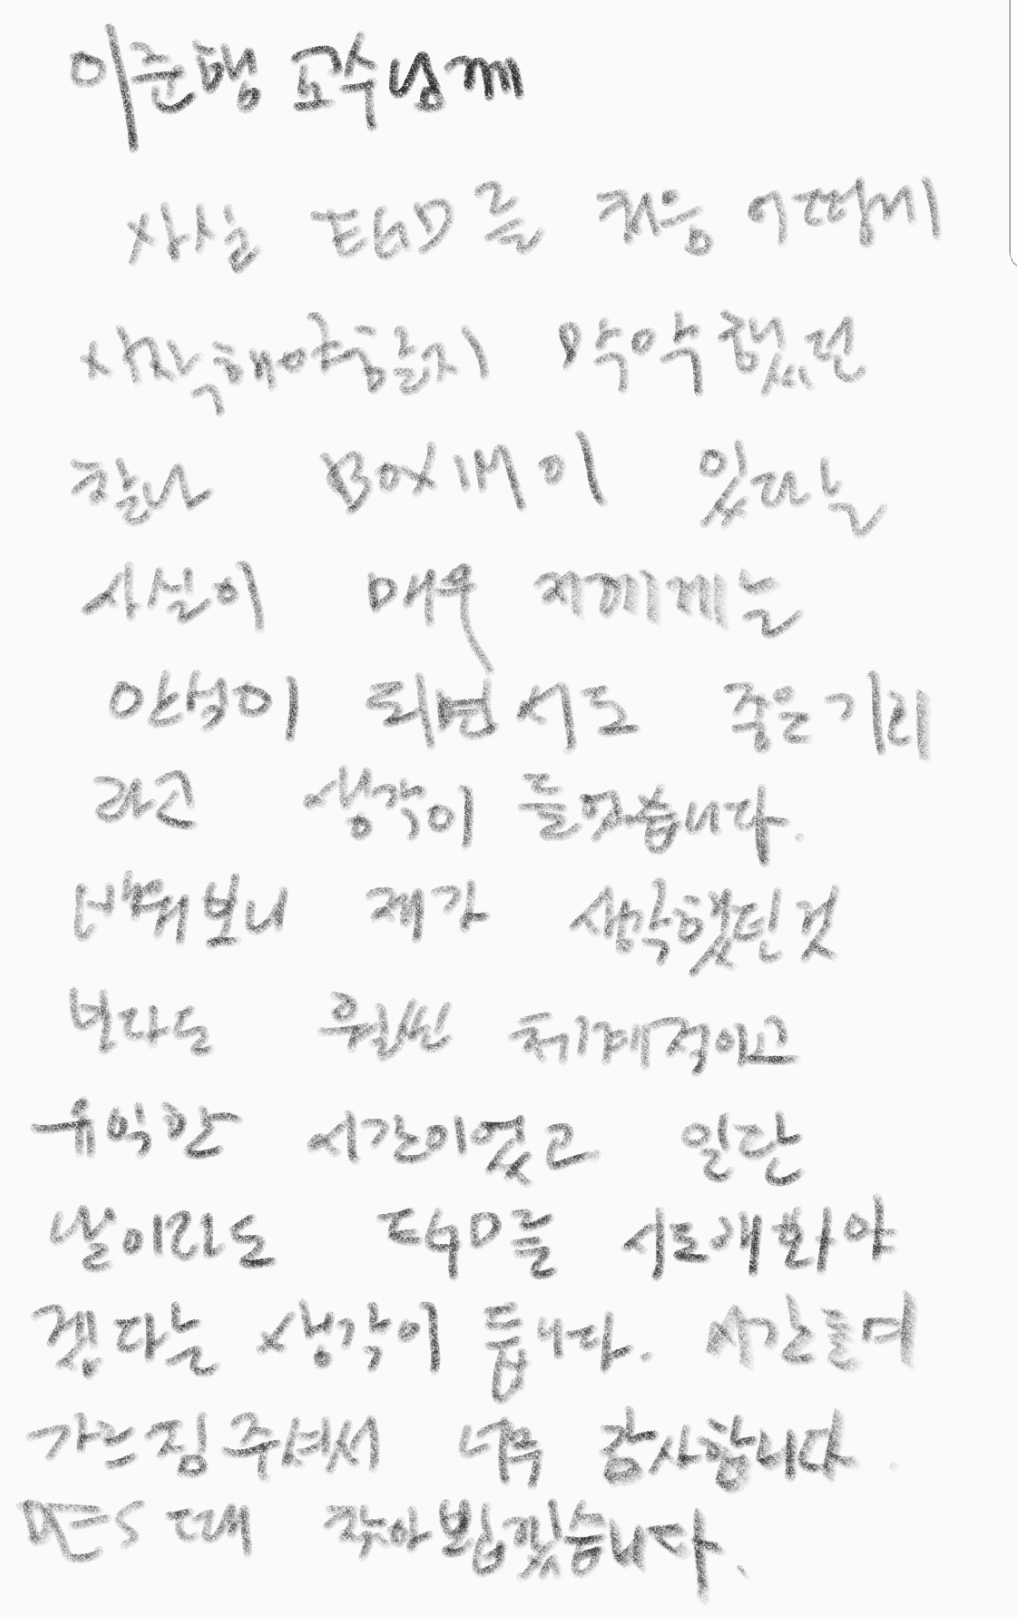 이준행 교수님께
사실 EGD를 처음 어떻게
시작해야할지 막막했던
찰나 BOXIM이 있다는
사실이 매우 저에게는
안석이 되면서도 좋은기리
라고 생각이 들었습니다.
배워보니 제가 생각했던것
보다도 훨씬 체계적이고
유익한 시간이었고 일단
날이라도 EGD를 시도해봐야
겠다는 생각이 듭니다. 시간들여
가르침주셔서 너무 감사합니다.
DES 때 찾아뵙겠습니다.